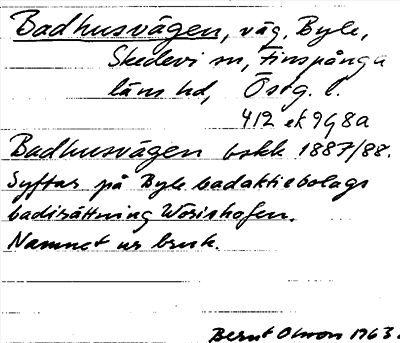 Badhusvägen, väg, Byle,
Skedevi sn, Finspånga
läns hd, Östg. l.
412 ek 9g8a
Badhusvägen bskk 1887/88.
Syftar på Byle badaktiebolags
badinrättning Wörishofen.
Namnet ur bruk.
Bernt Olsson 1963.